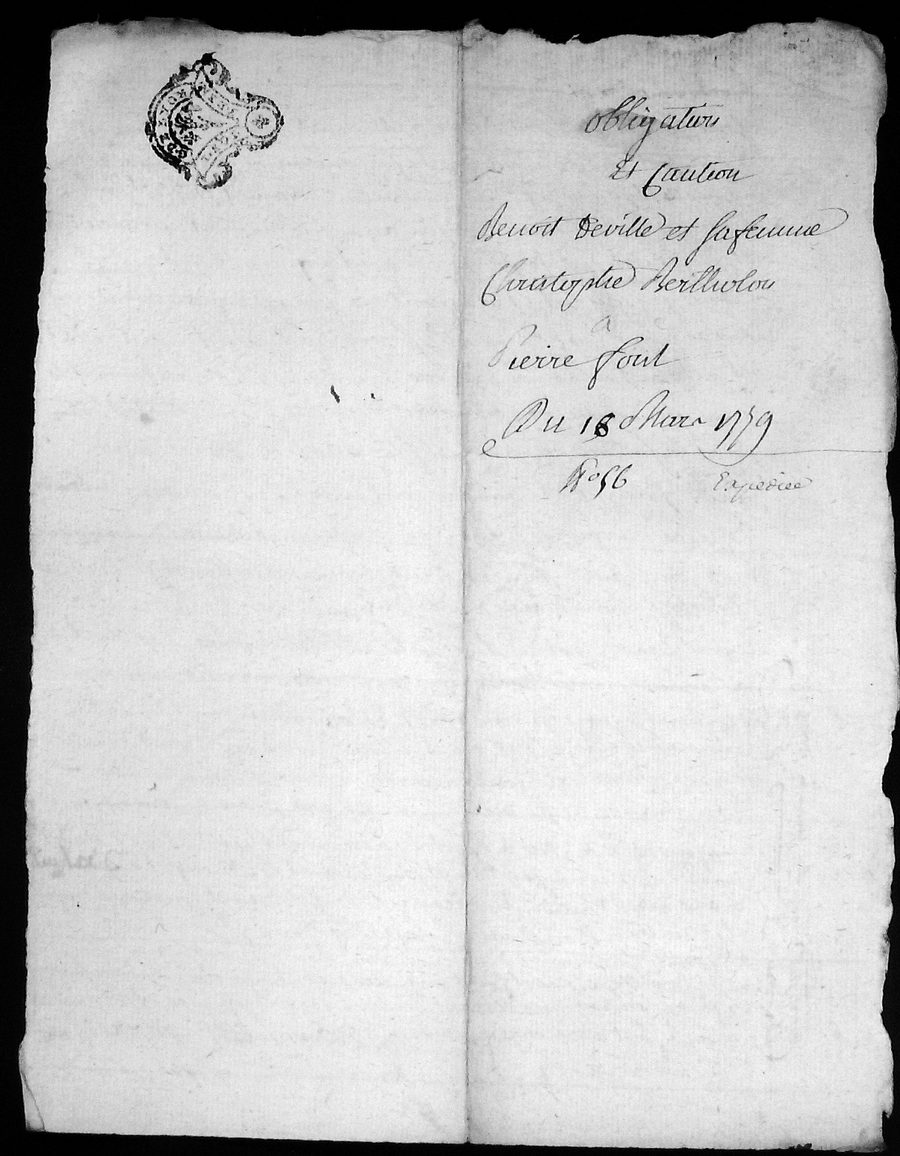 obligation
Et Caution
Benoit Deville et sa femme
Christophe Bertholon
a
Pierre font
Du 18 Mars 1759
N° 56 Expediee